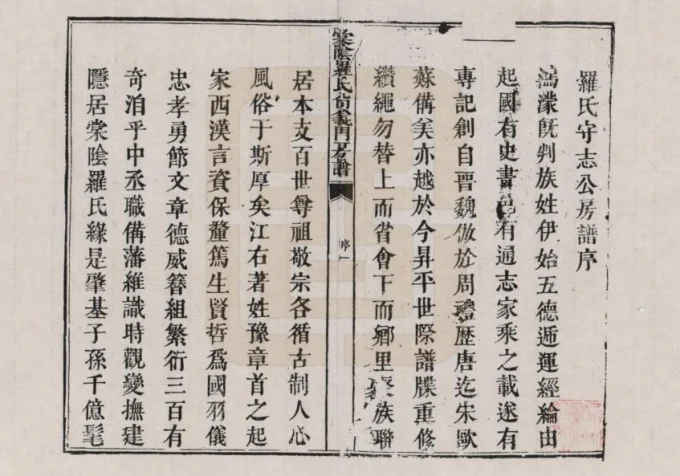 羅氏守志公房譜序
鴻濛旣判族姓伊始五德遞運經綸由
起國有史書邑有通志家乘之載遂有
專記創自晋魏倣於周禮歷唐迄宋歐
蘇備美亦越於今昇平世際譜牒重修
纘繩勿替上而省會下而鄉里聚族聯
棠陰羅氏尙義門房譜
序一
居本支百世尊祖敬宗各循古制人心
風俗于斯厚矣江右著姓豫章首之起
家西漢言資保釐篤生賢哲爲國羽儀
忠孝勇節文章德威簪組繁衍三百有
奇洎乎中丞職備藩維識時觀變撫建
隱居棠陰羅氏緣是肇基子孫千億髦